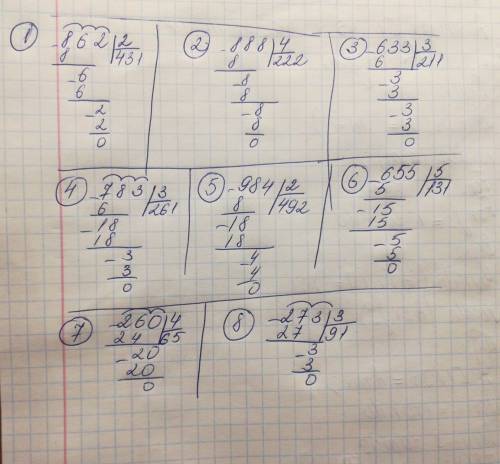 ① -862 | 2
8 | 431
-6
6
-2
2
0
② -888 | 4
8 | 222
-8
8
-8
8
0
③ -633 | 3
6 | 211
-3
3
-3
3
0
④ -783 | 3
6 | 261
-18
18
-3
3
0
⑤ -984 | 2
8 | 492
-18
18
-4
4
0
⑥ -655 | 5
5 | 131
-15
15
-5
5
0
⑦ -260 | 4
24 | 65
-20
20
0
⑧ -273 | 3
27 | 91
-3
3
0